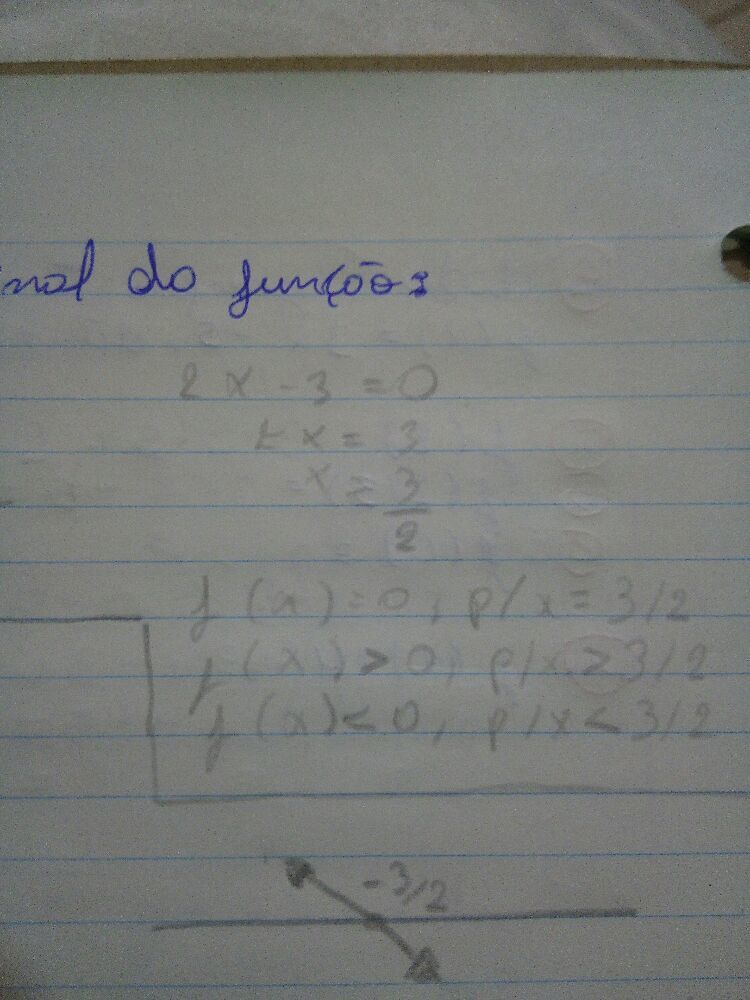 nal do função:
2x - 3 = 0
2x = 3
x = 3/2
f(x) = 0, p/ x = 3/2
f(x) > 0, p/ x > 3/2
f(x) < 0, p/ x < 3/2
-3/2